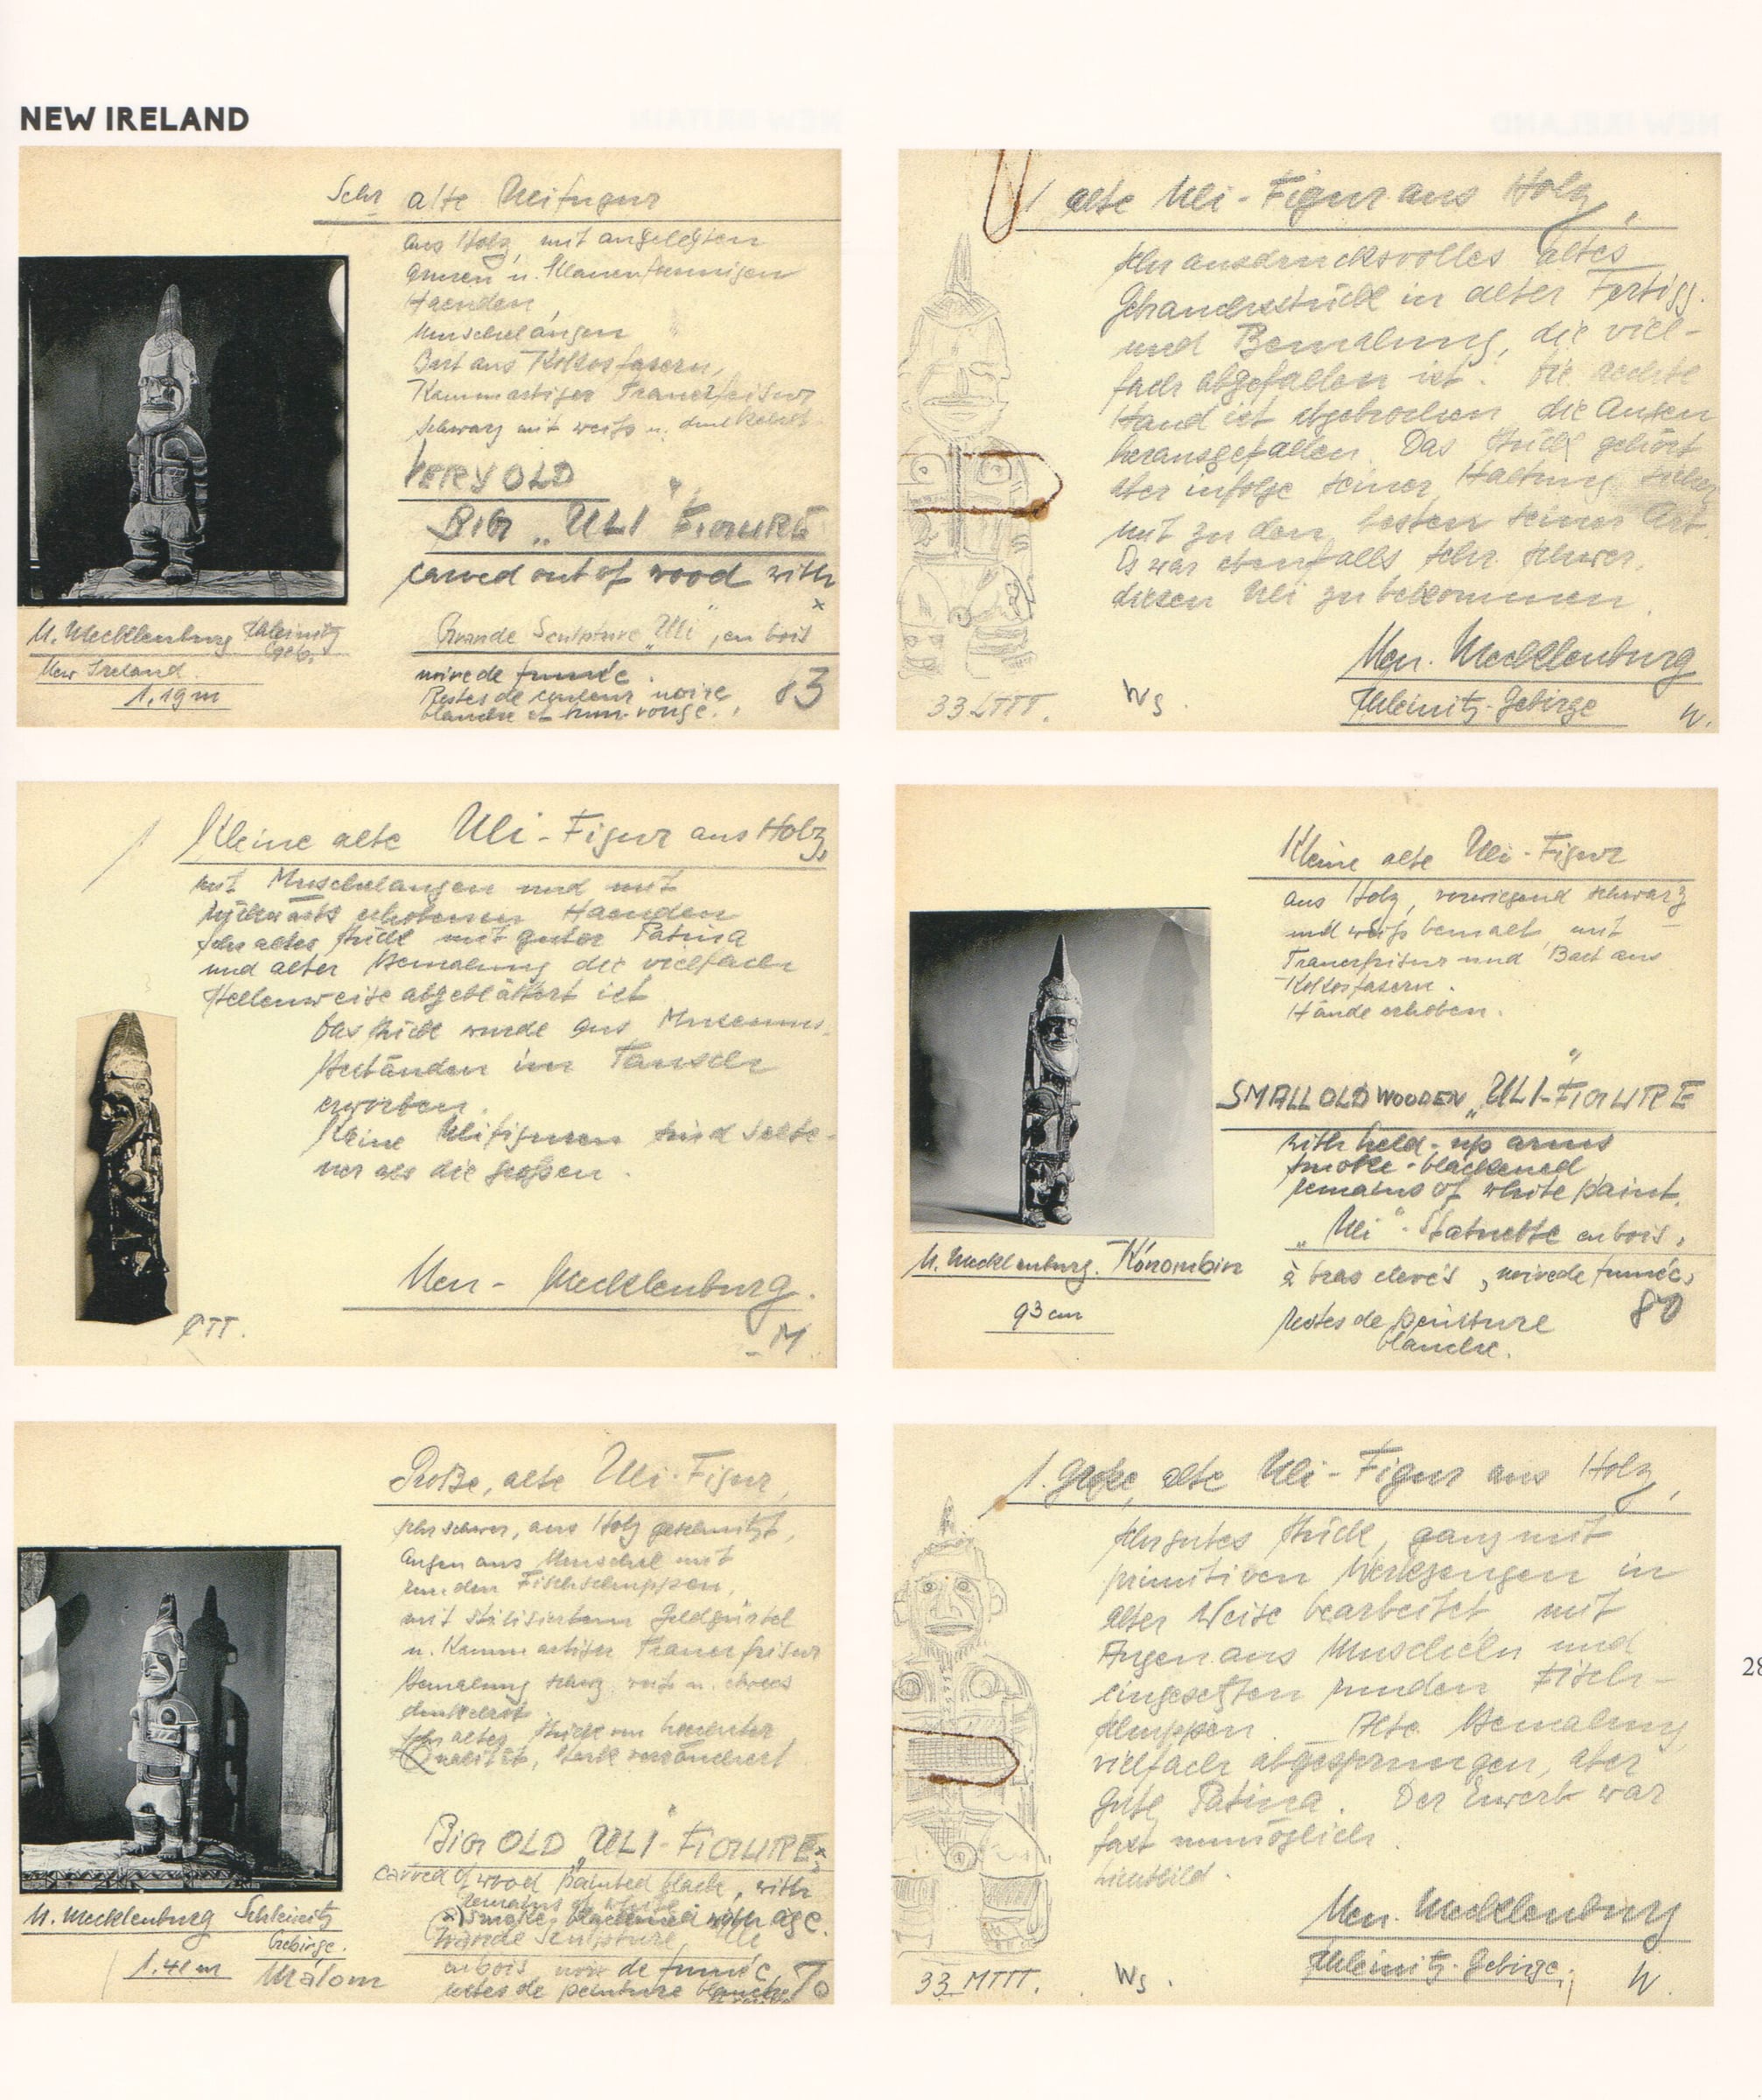 NEW IRELAND
Sehr alte Ulifigur
aus Holz, mit angelegten
Armen u. klauenförmigen
Haenden,
Muschelaugen
Bart aus Kokosfasern,
Kammartiger Trauerfrisur
schwarz mit weiss u.
VERY OLD
BIG „ULI" FIGURE
carved out of wood with
x
Grande Sculpture „Uli", en bois
noircie de fumée.
Restes de couleur noire
blanche et brun-rouge.
83
N. Mecklenburg Schleinitz
Geb.
New Ireland.
1.19 m
1 alte Uli-Figur aus Holz,
Sehr ausdrucksvolles altes
Gebrauchsstück in alter Fertigg.
und Bemalung, die viel-
fach abgefallen ist. Die rechte
Hand ist abgebrochen, die Augen
herausgefallen. Das Stück gehört
aber infolge seiner Haltung sicher
mit zu den besten seiner Art.
Es war ebenfalls sehr schwer,
diesen Uli zu bekommen.
Neu. Mecklenburg
Schleinitz-Gebirge
33 LTTT.
Ws.
W.
Kleine alte Uli-Figur aus Holz,
mit Muschelaugen und mit
erhobenen Haenden
Sehr altes Stück mit guter Patina
und alter Bemalung die vielfach
stellenweise abgeblättert ist
Das Stück wurde aus Museums-
Beständen im Tausch
erworben.
Kleine Ulifiguren sind selte-
ner als die großen.
Neu-Mecklenburg.
M.
Kleine alte Uli-Figur
aus Holz, vorwiegend schwarz
und weiß bemalt mit
Trauerfrisur und Bart aus
Kokosfasern.
Hände erhoben.
SMALL OLD WOODEN „ULI-FIGURE
with held-up arms
smoke-blackened
remains of white paint.
„Uli"-Statuette en bois,
à bras elevés, noircie de fumée,
restes de peinture
blanche.
80
N. Mecklenburg. Konombin
93 cm
Große, alte Uli-Figur,
sehr schwer, aus Holz geschnitzt,
Augen aus Muschel mit
runden Fischschuppen,
mit stilisiertem Geldgürtel
u. Kammartiger Trauerfrisur
Bemalung schwz. weiß u. etwas
dunkelrot.
Sehr altes Stück von hoechster
Qualität, stark verrändert
BIG OLD „ULI"-FIGURE x
carved of wood painted black, with
remains of white
x) smoke, blackened with age.
Grande Sculpture Uli
en bois noir de fumée
restes de peinture blanche
N. Mecklenburg Schleinitz
Gebirge.
1.41 m Malom
1. große, alte Uli-Figur aus Holz,
Sehr gutes Stück, ganz mit
primitiven Werkzeugen in
alter Weise bearbeitet, mit
Augen aus Muscheln und
eingesetzten runden Fisch-
schuppen. Alte Bemalung,
vielfach abgesprungen, aber
gute Patina. Der Erwerb war
fast unmöglich.
Lichtbild.
Neu. Mecklenburg
Schleinitz-Gebirge;
33 MTTT.
Ws.
W.
28